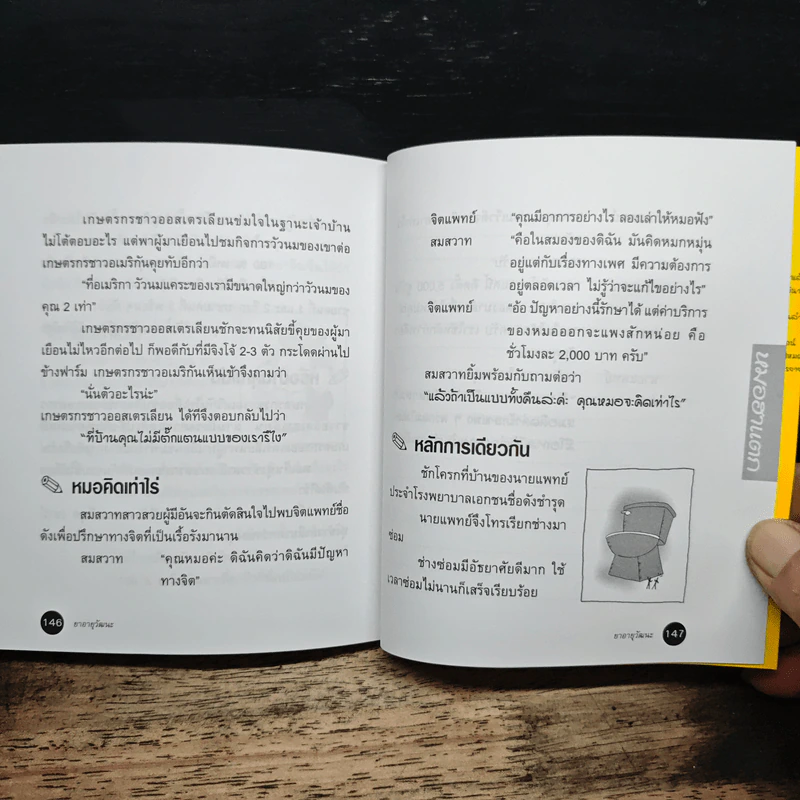 เกษตรกรชาวออสเตรเลียนข่มใจในฐานะเจ้าบ้าน
ไม่โต้ตอบอะไร แต่พาผู้มาเยือนไปชมกิจการวัวนมของเขาต่อ
เกษตรกรชาวอเมริกันคุยทับอีกว่า
“ที่อเมริกา วัวนมแคระของเรามีขนาดใหญ่กว่าวัวนมของ
คุณ 2 เท่า”
เกษตรกรชาวออสเตรเลียนชักจะทนนิสัยขี้คุยของผู้มา
เยือนไม่ไหวอีกต่อไป ก็พอดีกับที่มีจิงโจ้ 2-3 ตัว กระโดดผ่านไป
ข้างฟาร์ม เกษตรกรชาวอเมริกันเห็นเข้าจึงถามว่า
“นั่นตัวอะไรน่ะ”
เกษตรกรชาวออสเตรเลียน ได้ทีจึงตอบกลับไปว่า
“ที่บ้านคุณไม่มีตั๊กแตนแบบของเรารึไง”
หมอคิดเท่าไร่
สมสวาทสาวสวยผู้มีอันจะกินตัดสินใจไปพบจิตแพทย์ชื่อ
ดังเพื่อปรึกษาทางจิตที่เป็นเรื้อรังมานาน
สมสวาท “คุณหมอค่ะ ดิฉันคิดว่าดิฉันมีปัญหา
ทางจิต”
146 ยาอายุวัฒนะ
จิตแพทย์ “คุณมีอาการอย่างไร ลองเล่าให้หมอฟัง”
สมสวาท “คือในสมองของดิฉัน มันคิดหมกหมุ่น
อยู่แต่กับเรื่องทางเพศ มีความต้องการ
อยู่ตลอดเวลา ไม่รู้ว่าจะแก้ไขอย่างไร”
จิตแพทย์ “อ๋อ ปัญหาอย่างนี้รักษาได้ แต่ค่าบริการ
ของหมอออกจะแพงสักหน่อย คือ
ชั่วโมงละ 2,000 บาท ครับ”
สมสวาทยิ้มพร้อมกับถามต่อว่า
“แล้วถ้าเป็นแบบทั้งคืนล่ะค่ะ คุณหมอจะคิดเท่าไร”
หลักการเดียวกัน
ชักโครกที่บ้านของนายแพทย์
ประจำโรงพยาบาลเอกชนชื่อดังชำรุด
นายแพทย์จึงโทรเรียกช่างมา
ซ่อม
ช่างซ่อมมีอัธยาศัยดีมาก ใช้
เวลาซ่อมไม่นานก็เสร็จเรียบร้อย
ยาอายุวัฒนะ 147